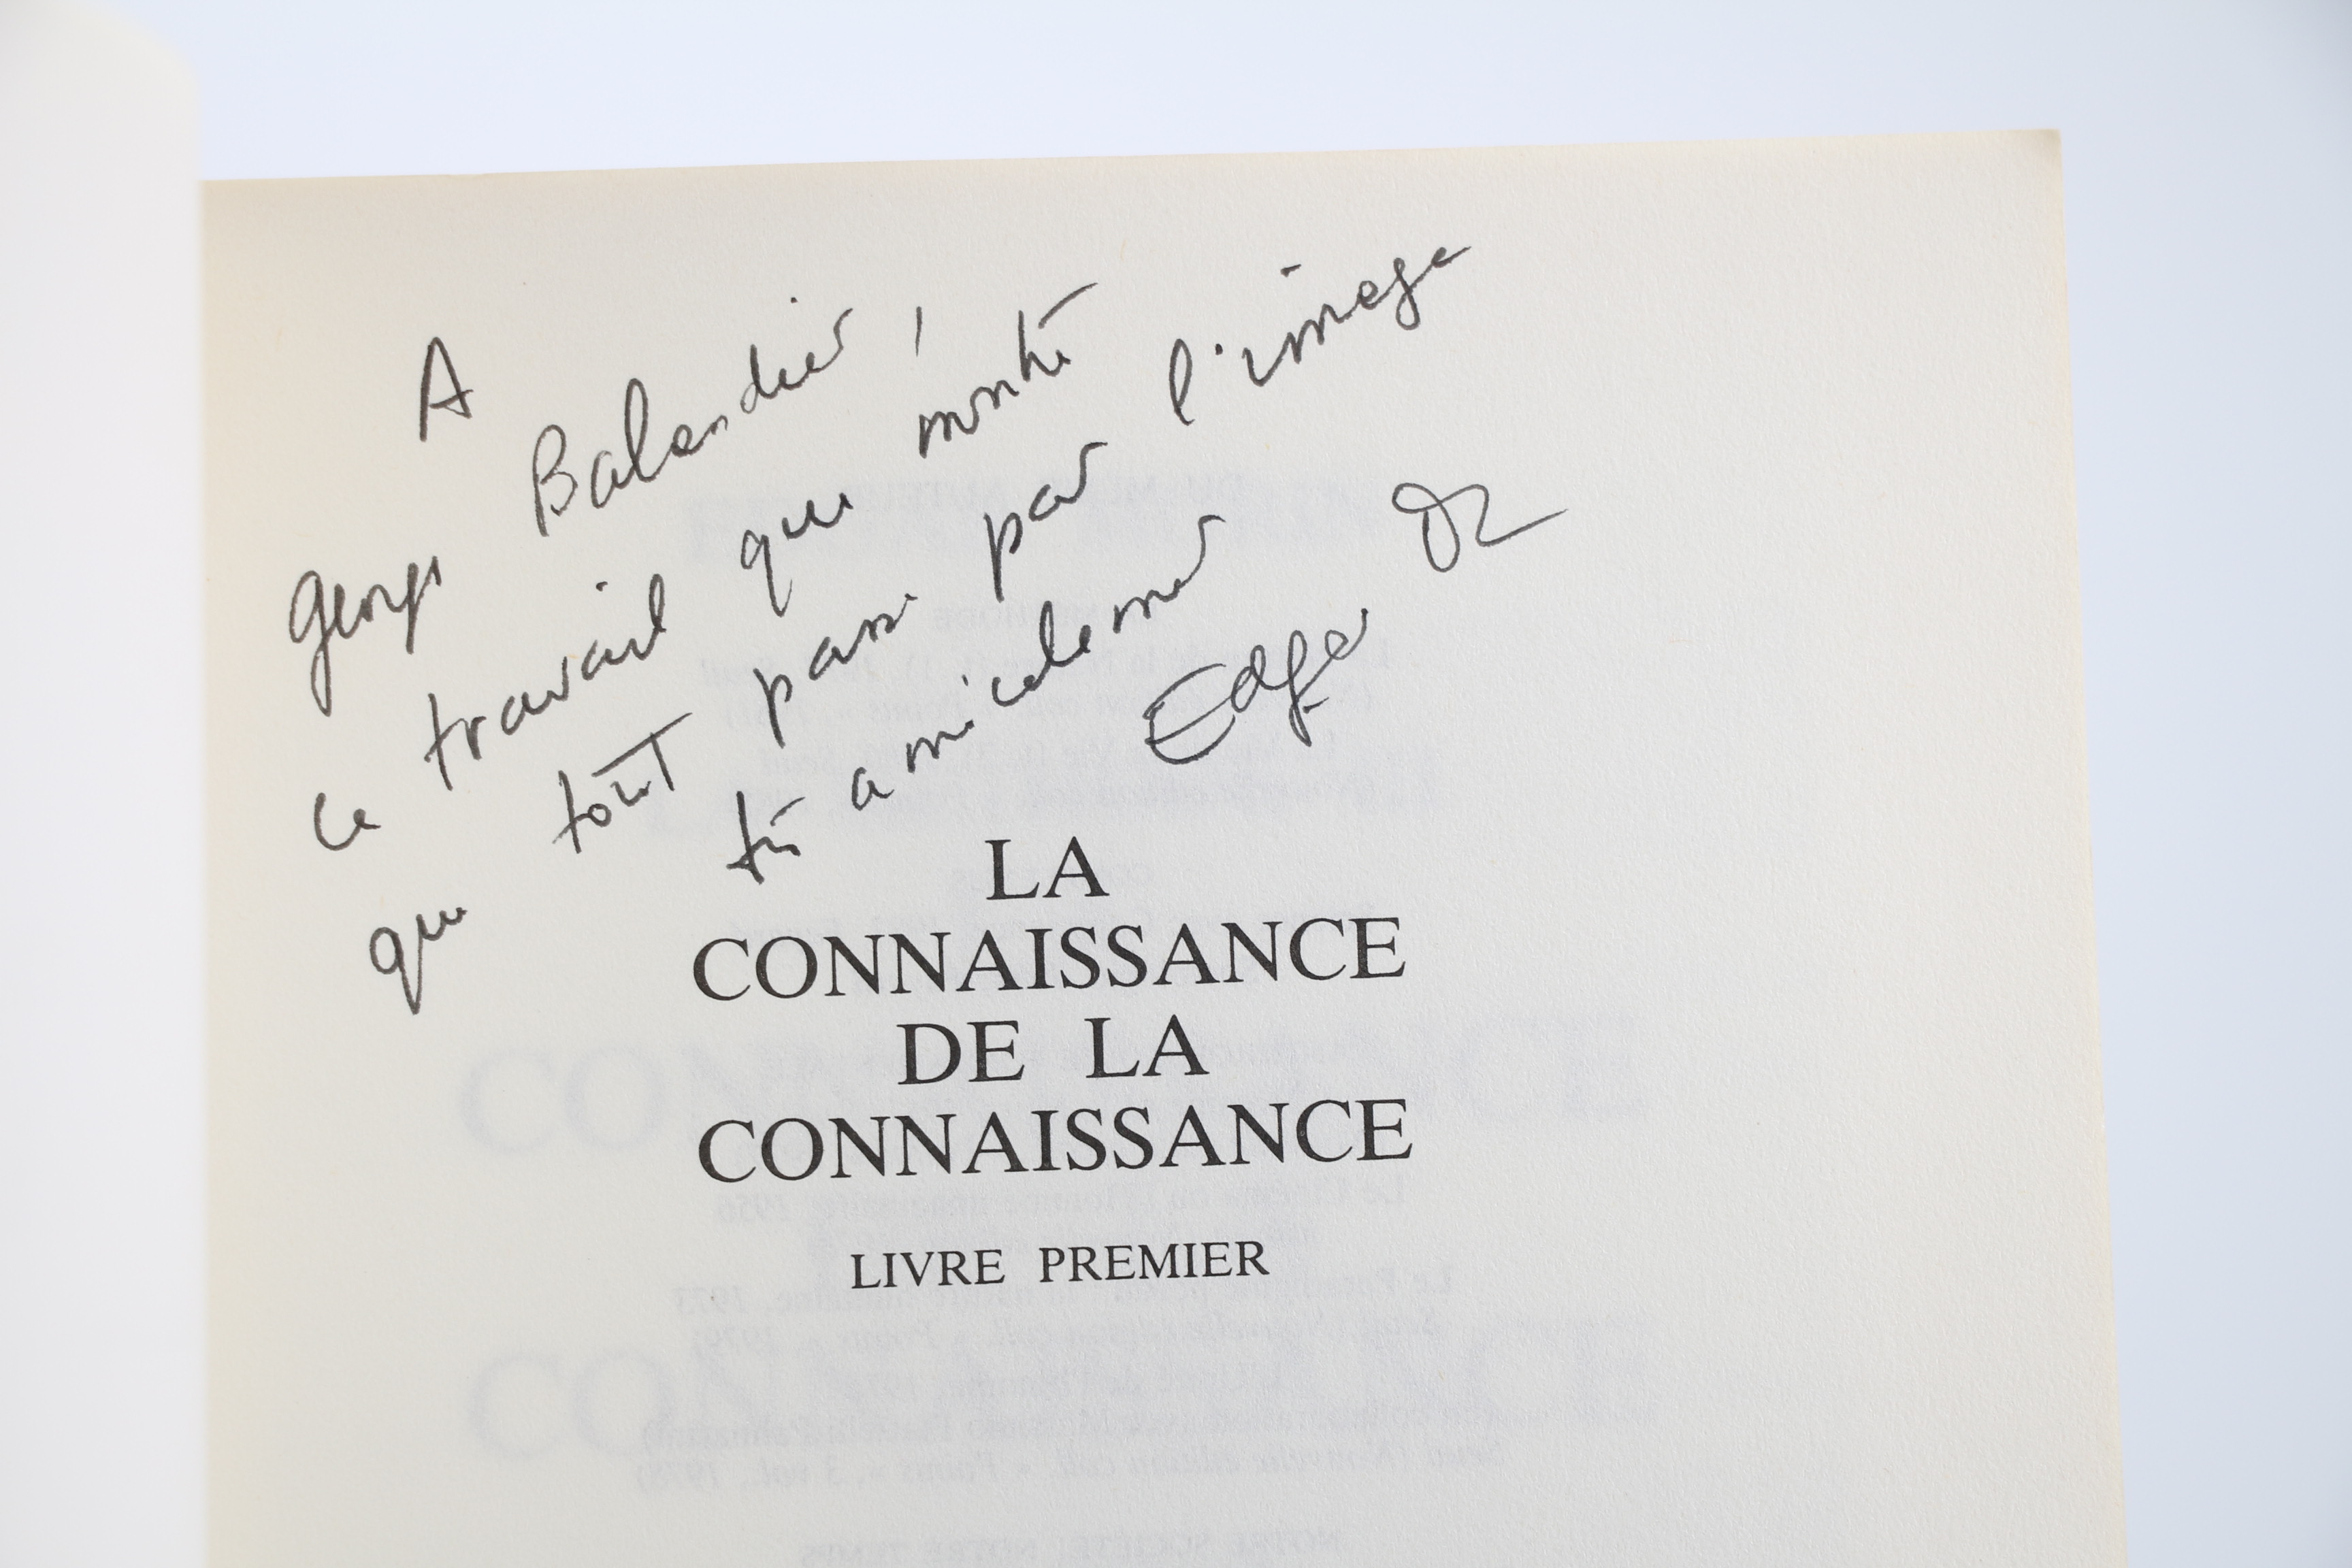 A
Georges Balandier,
ce travail qui montre
que tout passe par l'image
très amicalement
Edgar
LA
CONNAISSANCE
DE LA
CONNAISSANCE
LIVRE PREMIER